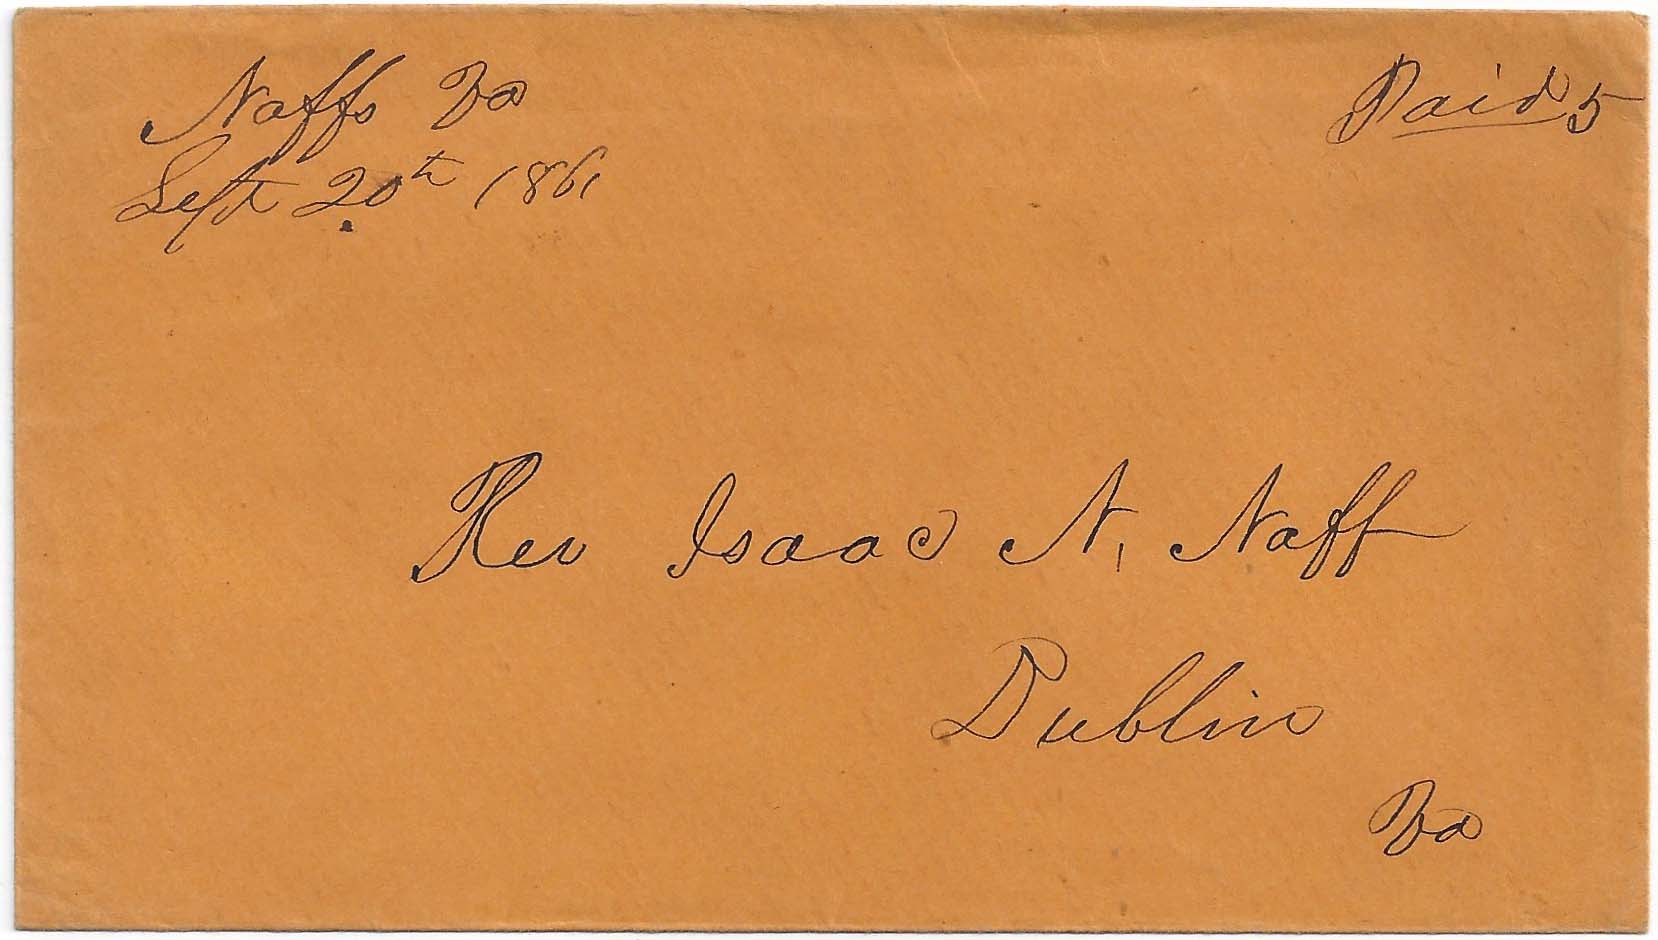 Naffs Va
Sept 20th 1861
Paid 5
Rev Isaac N. Naff
Dublin
Va